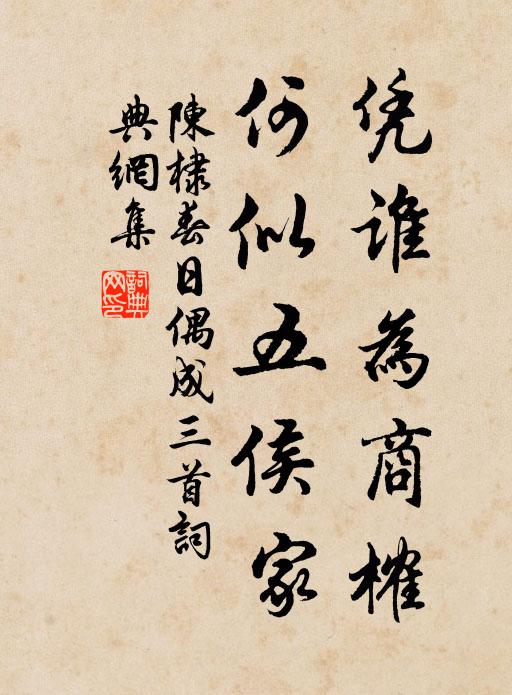 凭谁為商榷
何似五侯家
陳棣春日偶成三首詞
典網集
詞典網印